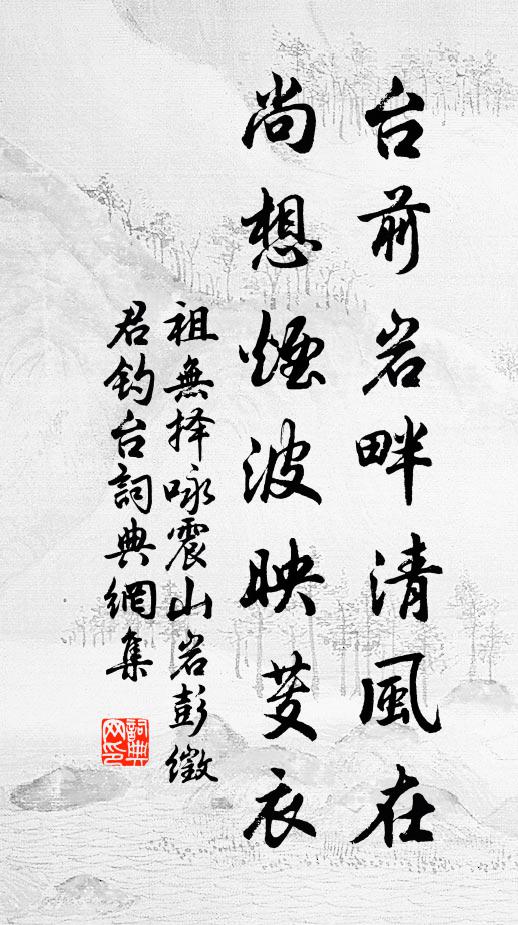 台前岩畔清風在
尚想煙波映芰衣
祖無择咏震山岩彭徵
君钓台詞典網集
詞典网印